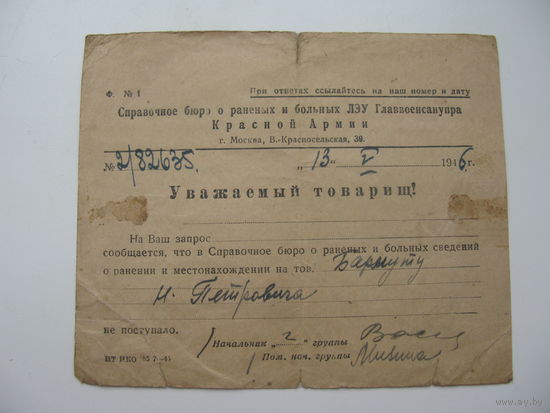 Ф. № 1 При ответах ссылайтесь на наш номер и дату
Справочное бюро о раненых и больных ЛЭУ Главвоенсанупра
Красной Армии
г. Москва, В.-Красносельская, 30.
№ 2/82635. „13“ V 1946 г.
Уважаемый товарищ!
На Ваш запрос
сообщается, что в Справочное бюро о раненых и больных сведений
о ранении и местонахождении на тов.
Н. Петровича
не поступало.
Начальник „2“ группы
Пом. нач. группы
www.ay.by